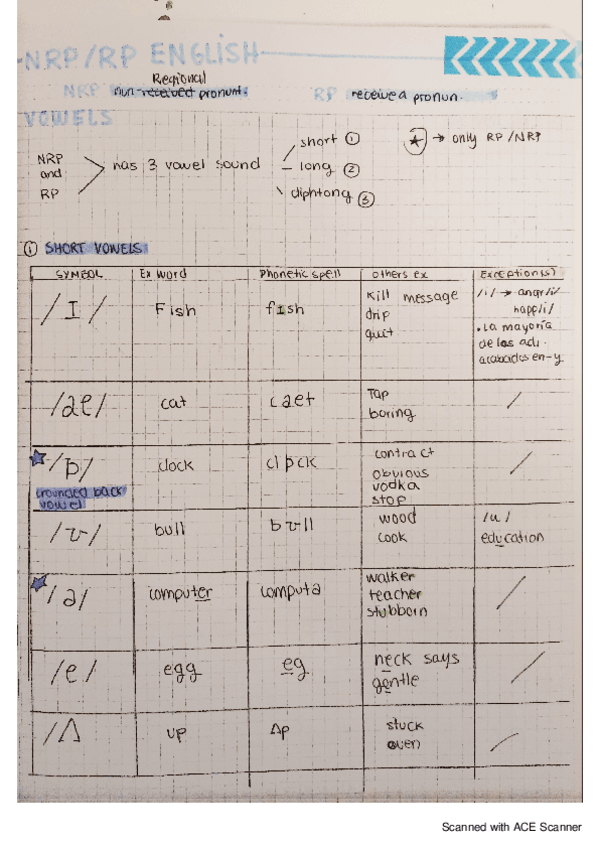 NRP/RP ENGLISH
Regional
NRP non-received pronunt. RP received pronun.
VOWELS
NRP and RP has 3 vowel sound
short ①
long ②
diphtong ③
★ → only RP/NRP
① SHORT VOWELS
SYMBOL Ex word Phonetic spell others ex Exception(s)
/I/ Fish fIsh kill message /i/ → angr/i/
drip happ/i/
.La mayoría
de los adj.
acabados en -y.
/æ/ cat caet Tap /
boring
/þ/ clock clþck contract /
rounded back vowel obvious
vodka
stop
/ʊ/ bull bʊll wood /u/
cook education
/ə/ computer computə walker /
teacher
stubborn
/e/ egg eg neck says /
gentle
/Λ up Λp stuck /
oven
Scanned with ACE Scanner